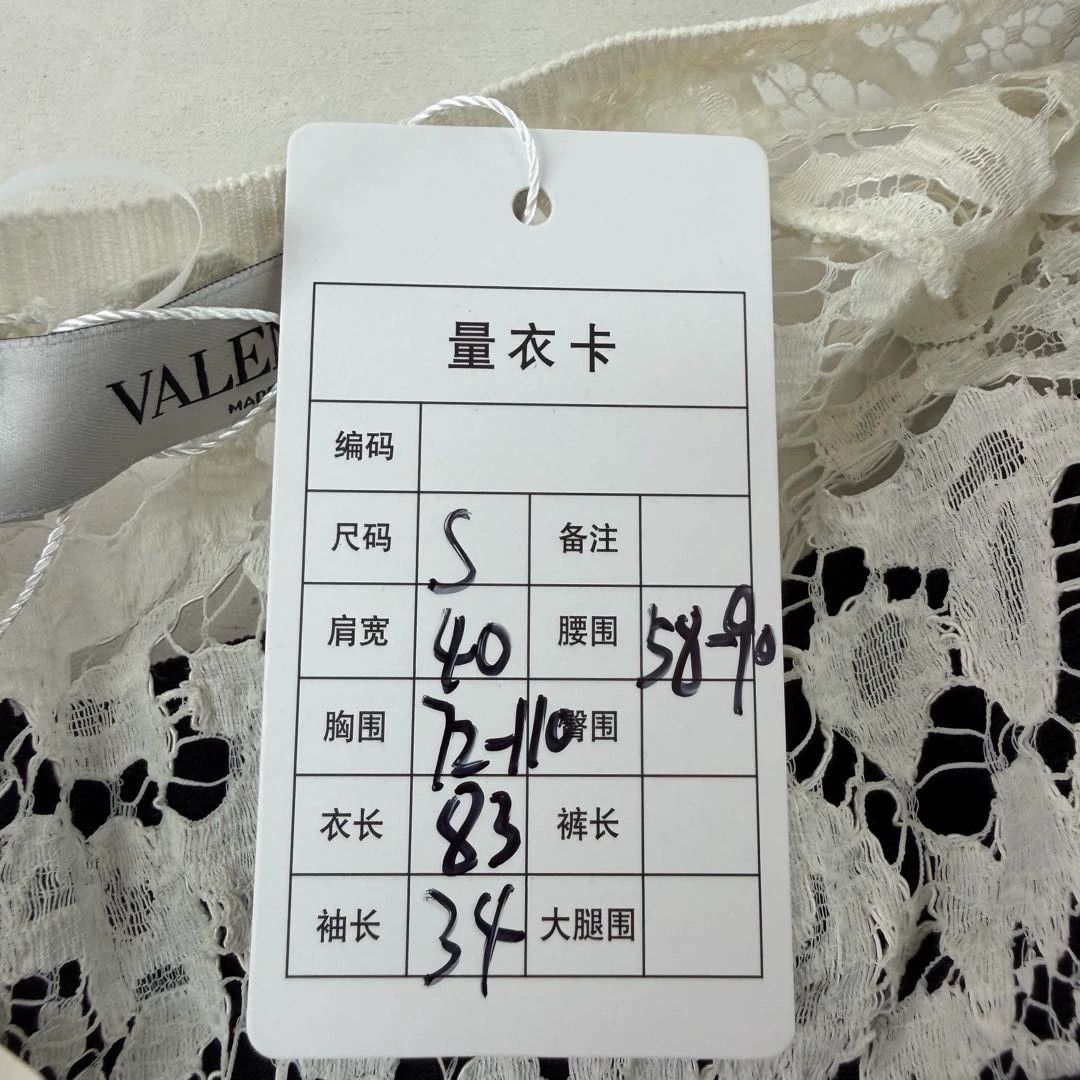 量衣卡
VALEN
MADE
编码
尺码 S 备注
肩宽 40 腰围 58-90
胸围 72-110 臀围
衣长 83 裤长
袖长 34 大腿围